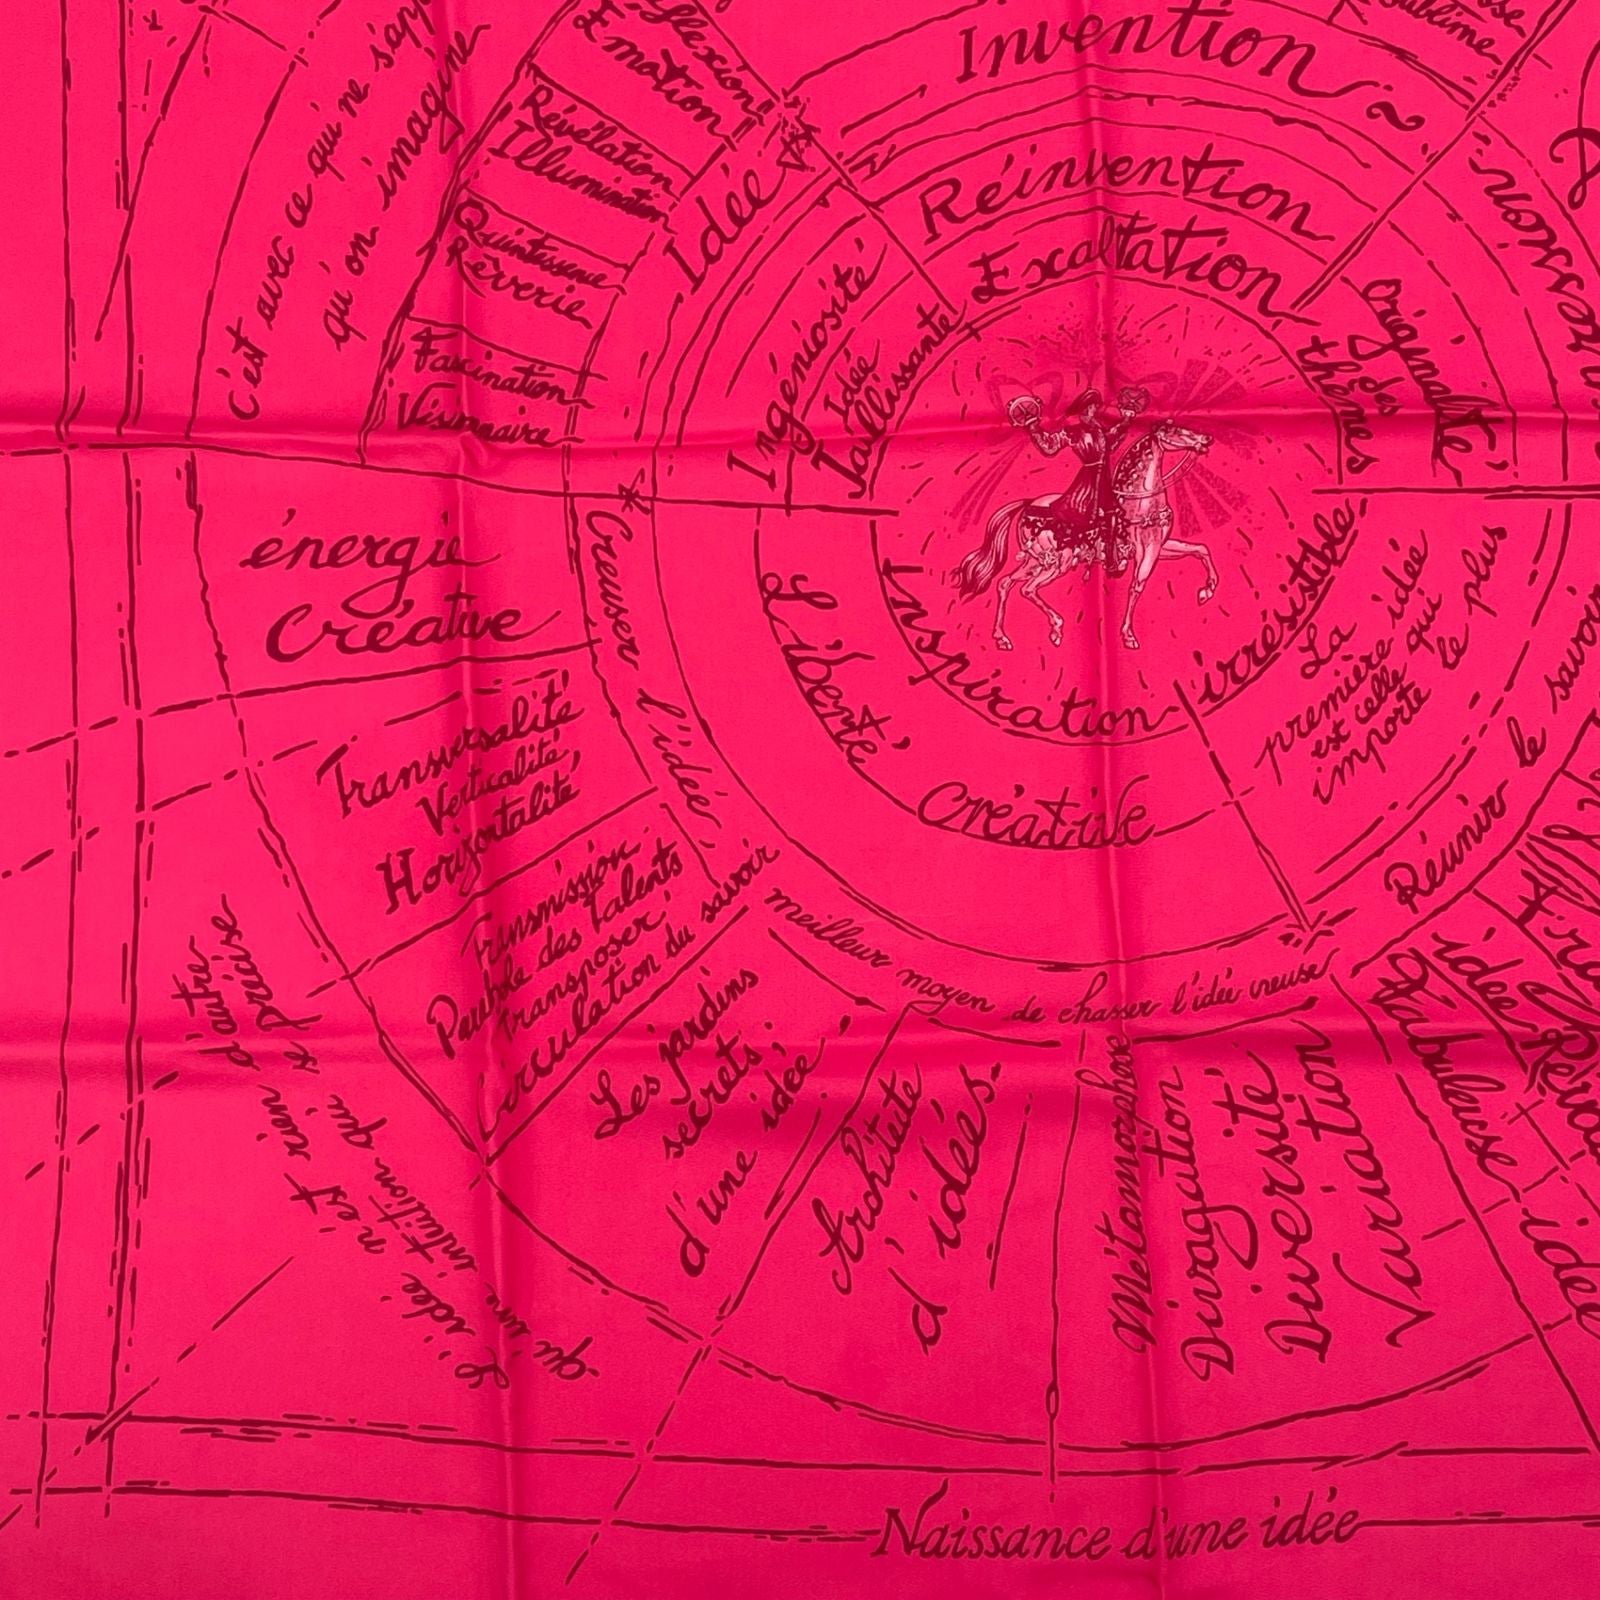 Invention
Réinvention
Exaltation
Émotion
Révélation
Illumination
Quintessence
Rêverie
Fascination
Visionnaire
Idée
c'est avec ce qui ne
qu'on imagine
Ingéniosité
Idée
Jaillissante
originalité
des
thèmes
énergie
Créative
Creuser l'idée
Inspiration irrésistible
Liberté
Créative
La
première idée
est celle qui
importe le plus
Transversalité
Verticalité
Horizontalité
Transmission
Parabole des talents
transposer
Circulation du savoir
meilleur moyen de chasser l'idée creuse
Réunir le savoir
Les jardins
secrets
d'une idée
Architecte
d'idées
Métamorphose
Divagation
Diversité
Variation
Fabuleuse
idée
L'idée n'est rien d'autre
qu'une intuition qui se précise
Naissance d'une idée